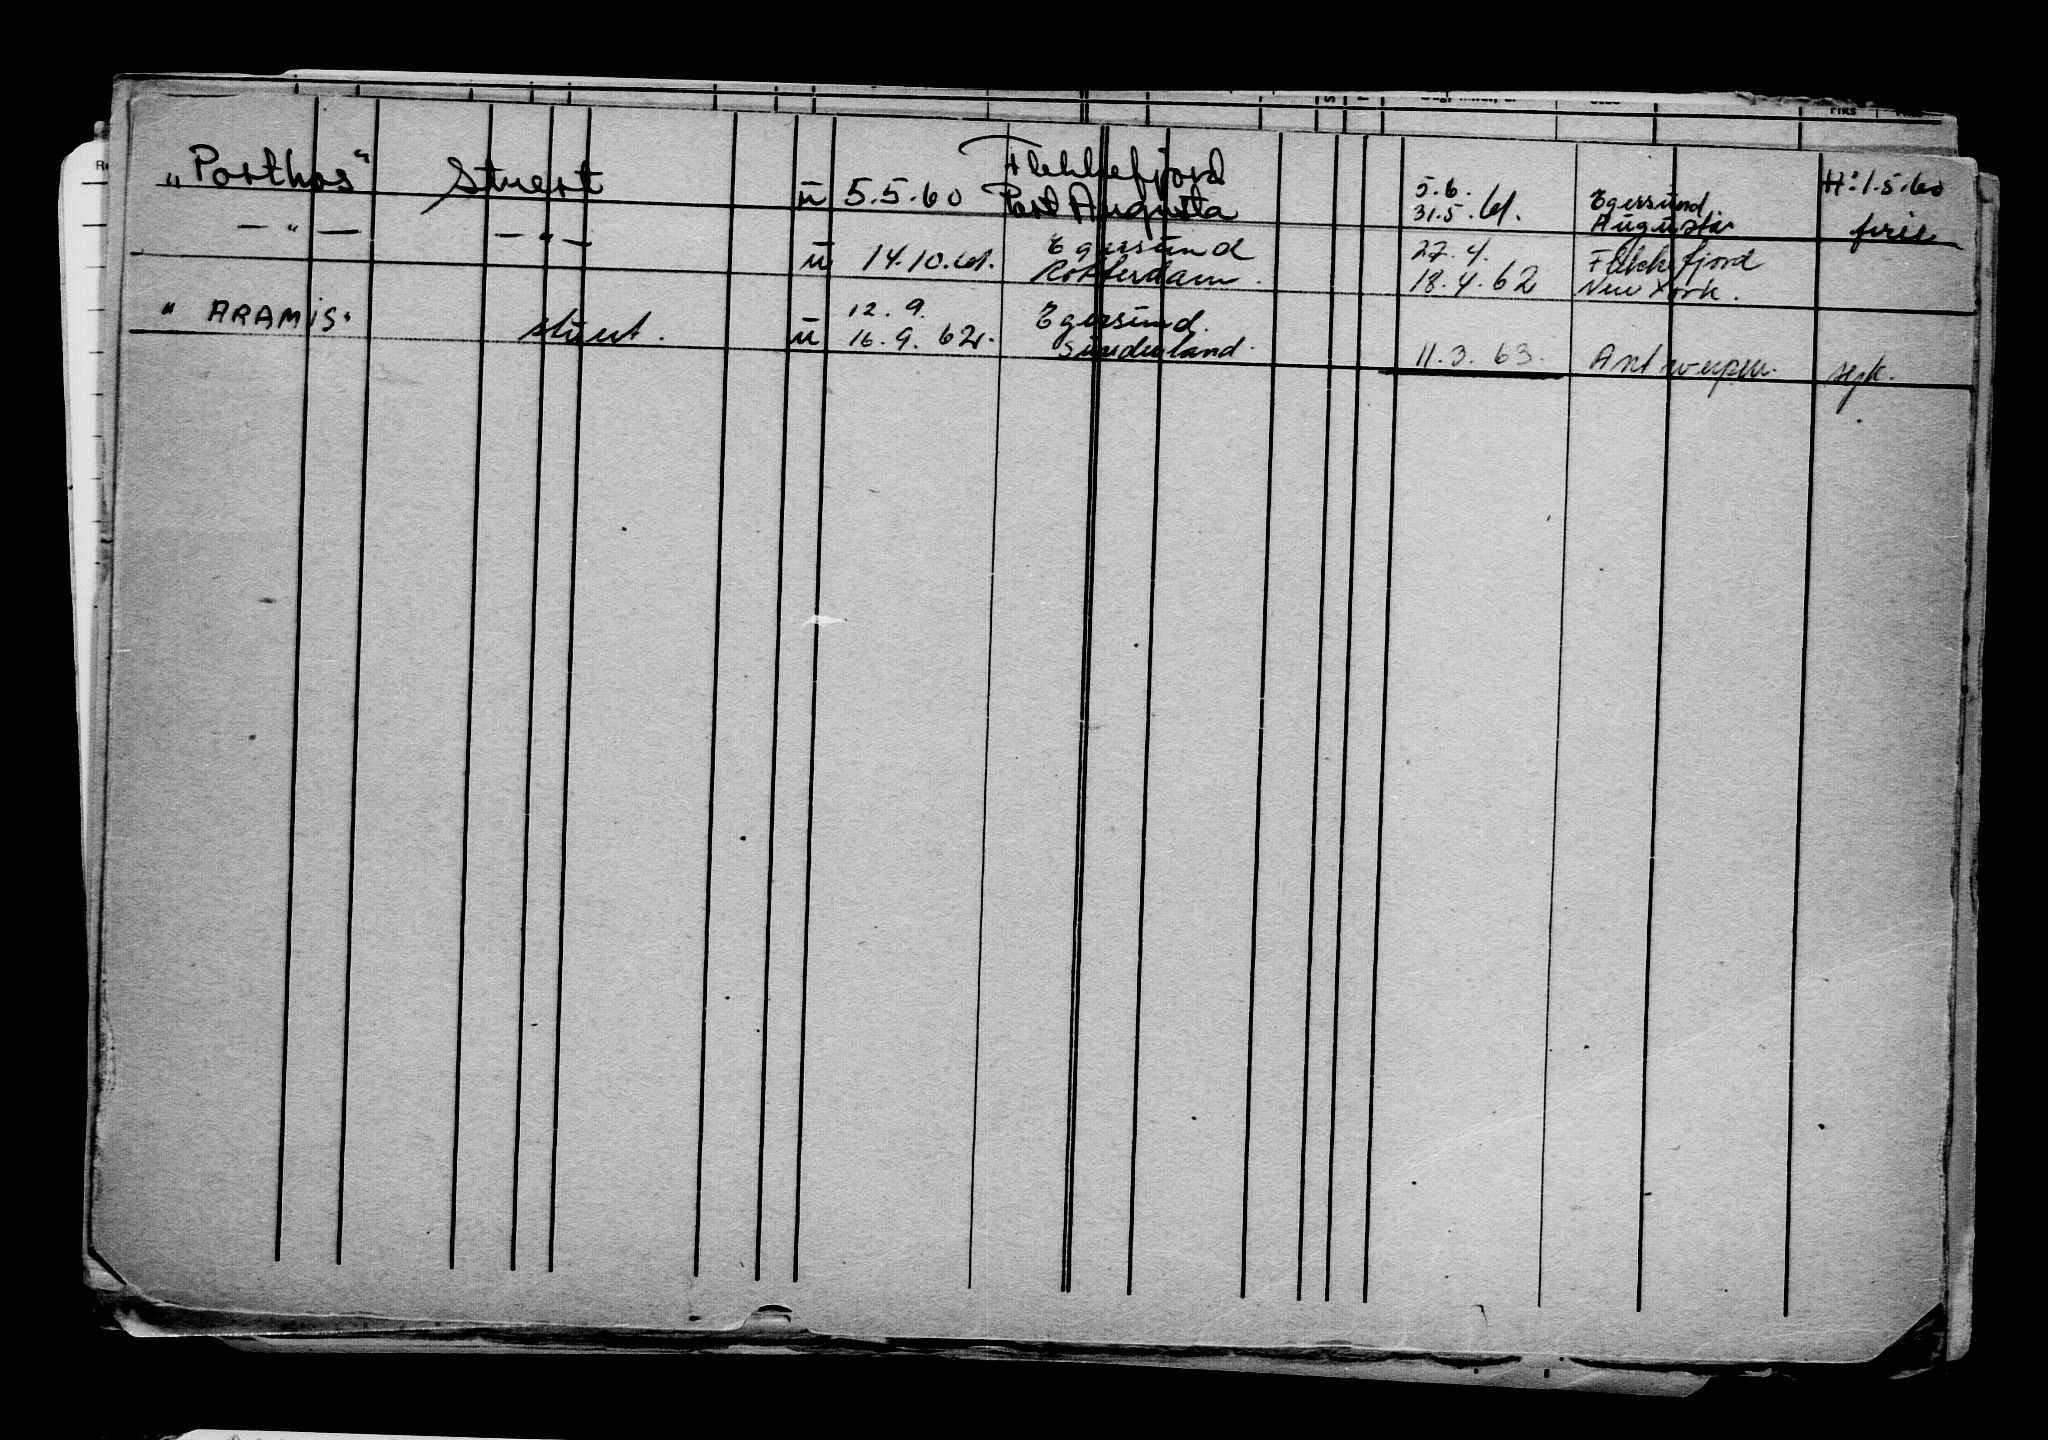 „Porthos" Stuert u 5.5.60 Flekkefjord Port Augusta 5.6. 31.5.61. Egersund Augusta H: 1.5.60 ferie
— " — — " — u 14.10.61. Egersund Rotterdam. 27.4. 18.4.62 Flekkefjord New York.
" ARAMIS" stuert. u 12.9. 16.9.62. Egersund. Sunderland. 11.3.63. Antwerpen. sygk.